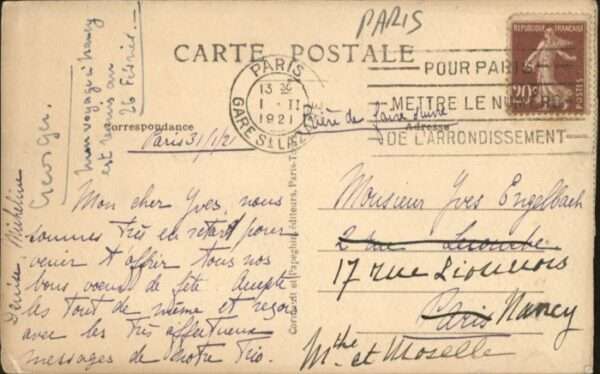 PARIS
CARTE POSTALE
RÉPUBLIQUE FRANÇAISE
20c
POSTES
PARIS
13
1 - II
1921
GARE St LAZARE
POUR PARIS
METTRE LE NUMÉRO
DE L'ARRONDISSEMENT
Correspondance
Adresse
Prière de faire suivre
Paris 31/1/21
Mon cher Yves, nous
sommes très en retard pour
venir t'offrir tous nos
bons voeux de fête. Accepte
les tout de même et reçois
avec les très affectueux
messages de notre trio.
Denise, Micheline
Georges.
Mon voyage à Nancy
est remis au
26 Février.
Monsieur Yves Engelbach
2 rue
17 rue Lionnois
Paris Nancy
Mthe et Moselle
éditeurs, Paris